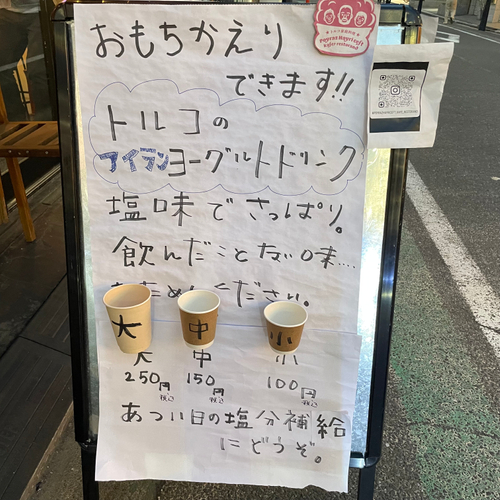 おもちかえり
できます!!
トルコの
アイランヨーグルトドリンク
塩味でさっぱり。
飲んだことない味....
おためしください。
大 中 小
大 中 小
250円 150円 100円
税込 税込 税込
あつい日の塩分補給
にどうぞ。